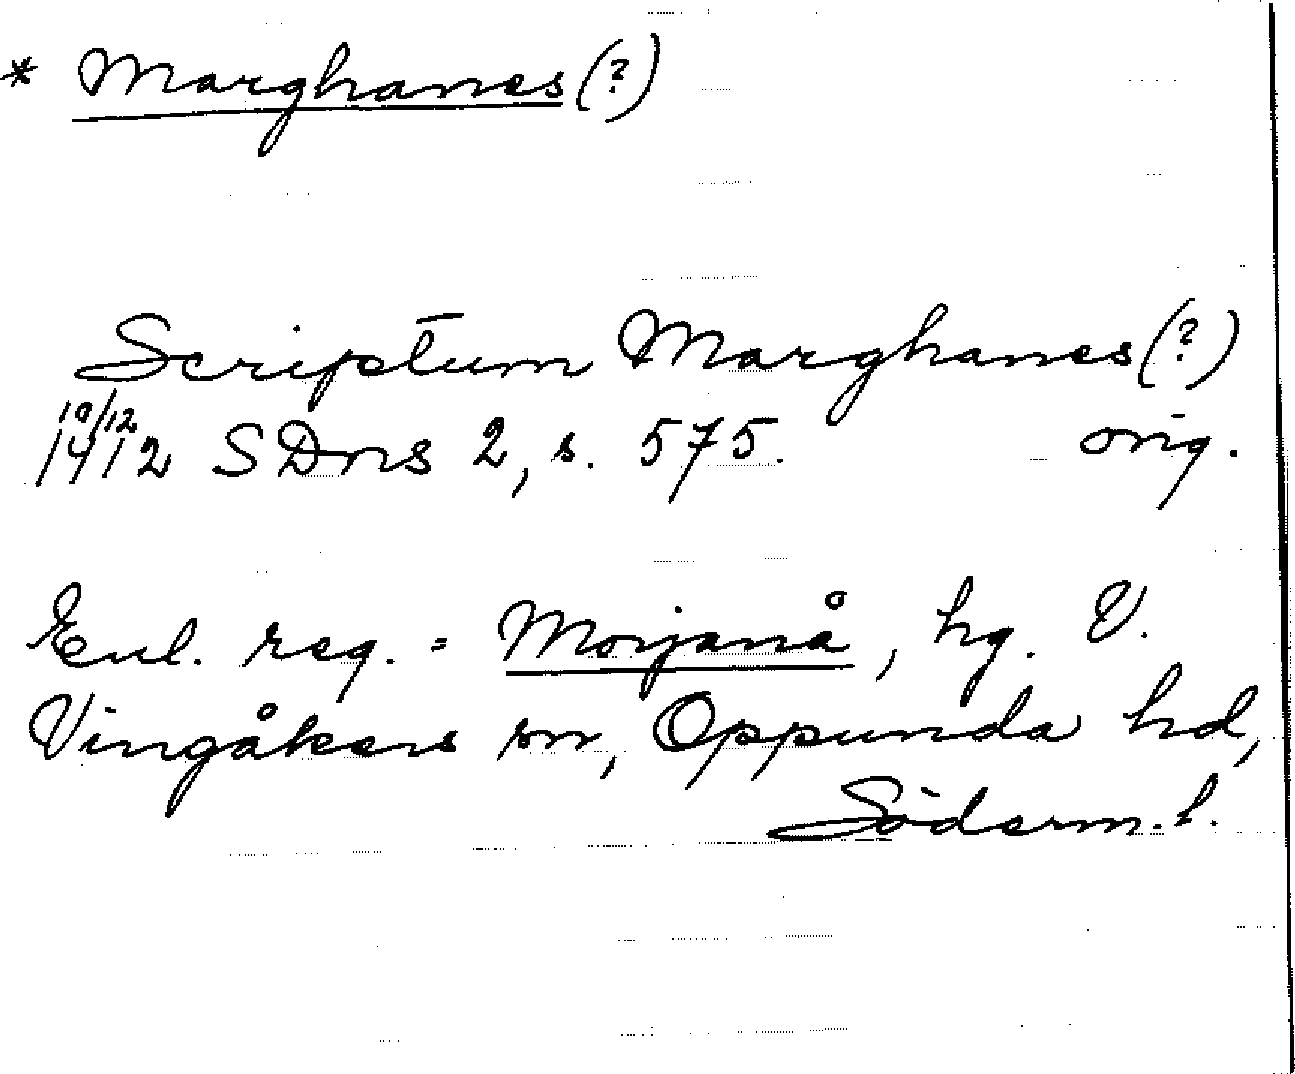 * Marghanes (?)
Scriptum Marghanes (?)
19/12
1412 SDns 2, s. 575. orig.
Enl. reg. = Morjanå, hg. V.
Vingåkers sn, Oppunda hd,
Söderm. l.